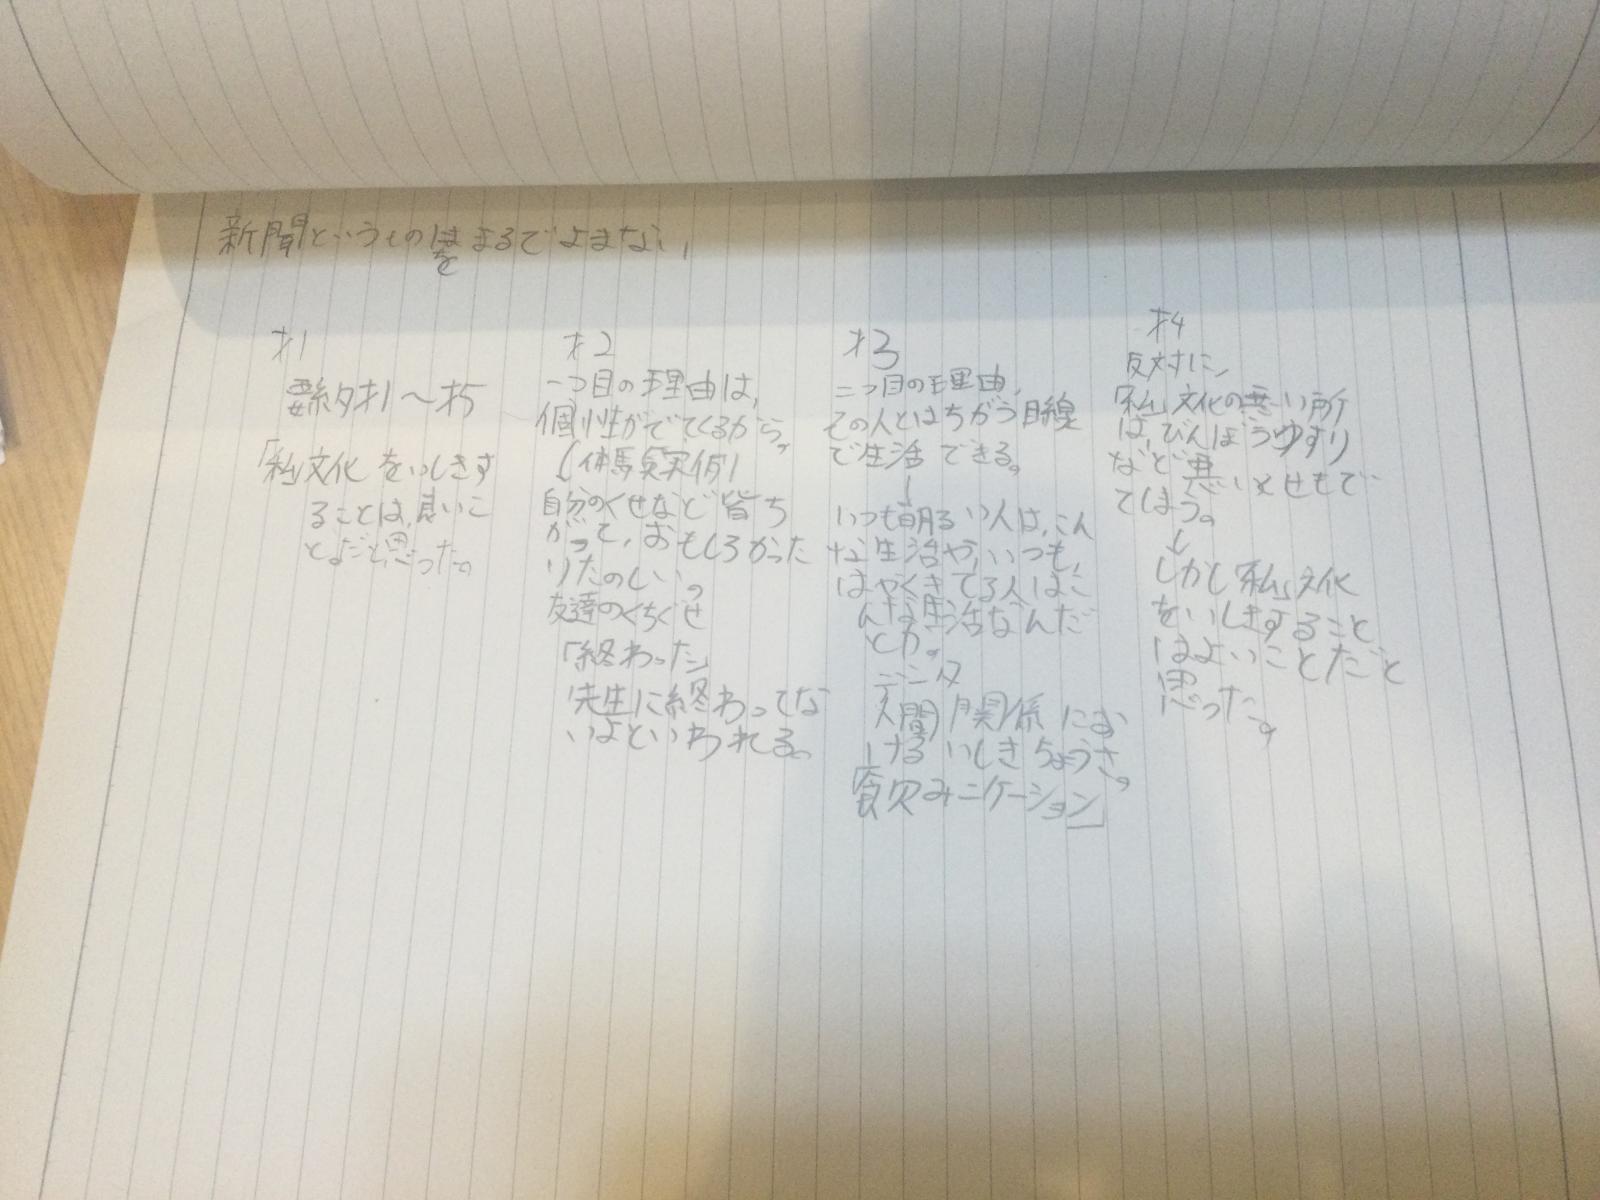 新聞というものはまるでよまない、
を
才1
要約才1〜才5
「私」文化をいしきす
ることは、良いこ
とだと思った。
才2
一つ目の理由は、
個性がでてくるから。
(体験実例)
自分のくせなど皆ち
がって、おもしろかった
りたのしい。
友達のくちぐせ
「終わった」
先生に終わってな
いよといわれる。
才3
二つ目の理由、
その人とはちがう目線
で生活できる。
↓
いつも明るい人は、こん
な生活や、いつも、
はやくきてる人はこ
んな生活なんだ
とか。
データ
人間関係にお
けるいしきちょうさ。
飲みニケーション」
才4
反対に、
「私」文化の悪い所
は、びんぼうゆすり
など悪いくせもで
てしまう。
↓
しかし「私」文化
をいしきすること
はよいことだと
思った。